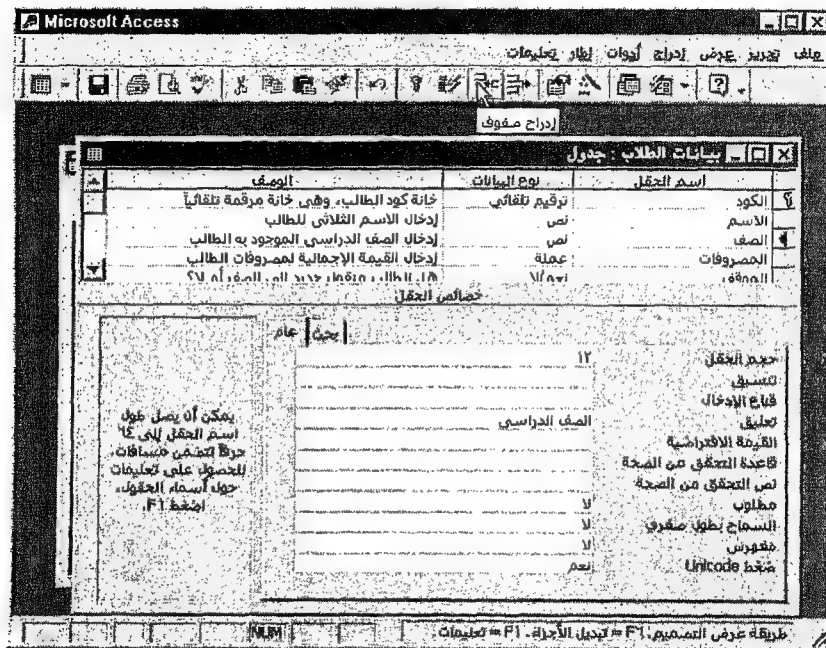 Microsoft Access
ملف تحرير عرض إدراج أدوات إطار تعليمات
إدراج صفوف
بيانات الطلاب : جدول
اسم الحقل نوع البيانات الوصف
الكود ترقيم تلقائي خانة كود الطالب، وهي خانة مرقمة تلقائياً
الاسم نص إدخال الاسم الثلاثى للطالب
الصف نص إدخال الصف الدراسى الموجود به الطالب
المصروفات عملة إدخال القيمة الإجمالية لمصروفات الطالب
الموقف نعم/لا هل الطالب منقول جديد إلى الصف أم لا؟
خصائص الحقل
عام بحث
حجم الحقل ١٢
تنسيق
قناع الإدخال
تعليق الصف الدراسي
القيمة الافتراضية
قاعدة التحقق من الصحة
نص التحقق من الصحة
مطلوب لا
السماح بطول صفري لا
مفهرس لا
ضغط Unicode نعم
يمكن أن يصل طول
اسم الحقل إلى ٦٤
حرفاً تتضمن مسافات.
للحصول على تعليمات
حول أسماء الحقول،
اضغط F1.
طريقة عرض التصميم. F٦ = تبديل الأجزاء. F١ = تعليمات. NUM